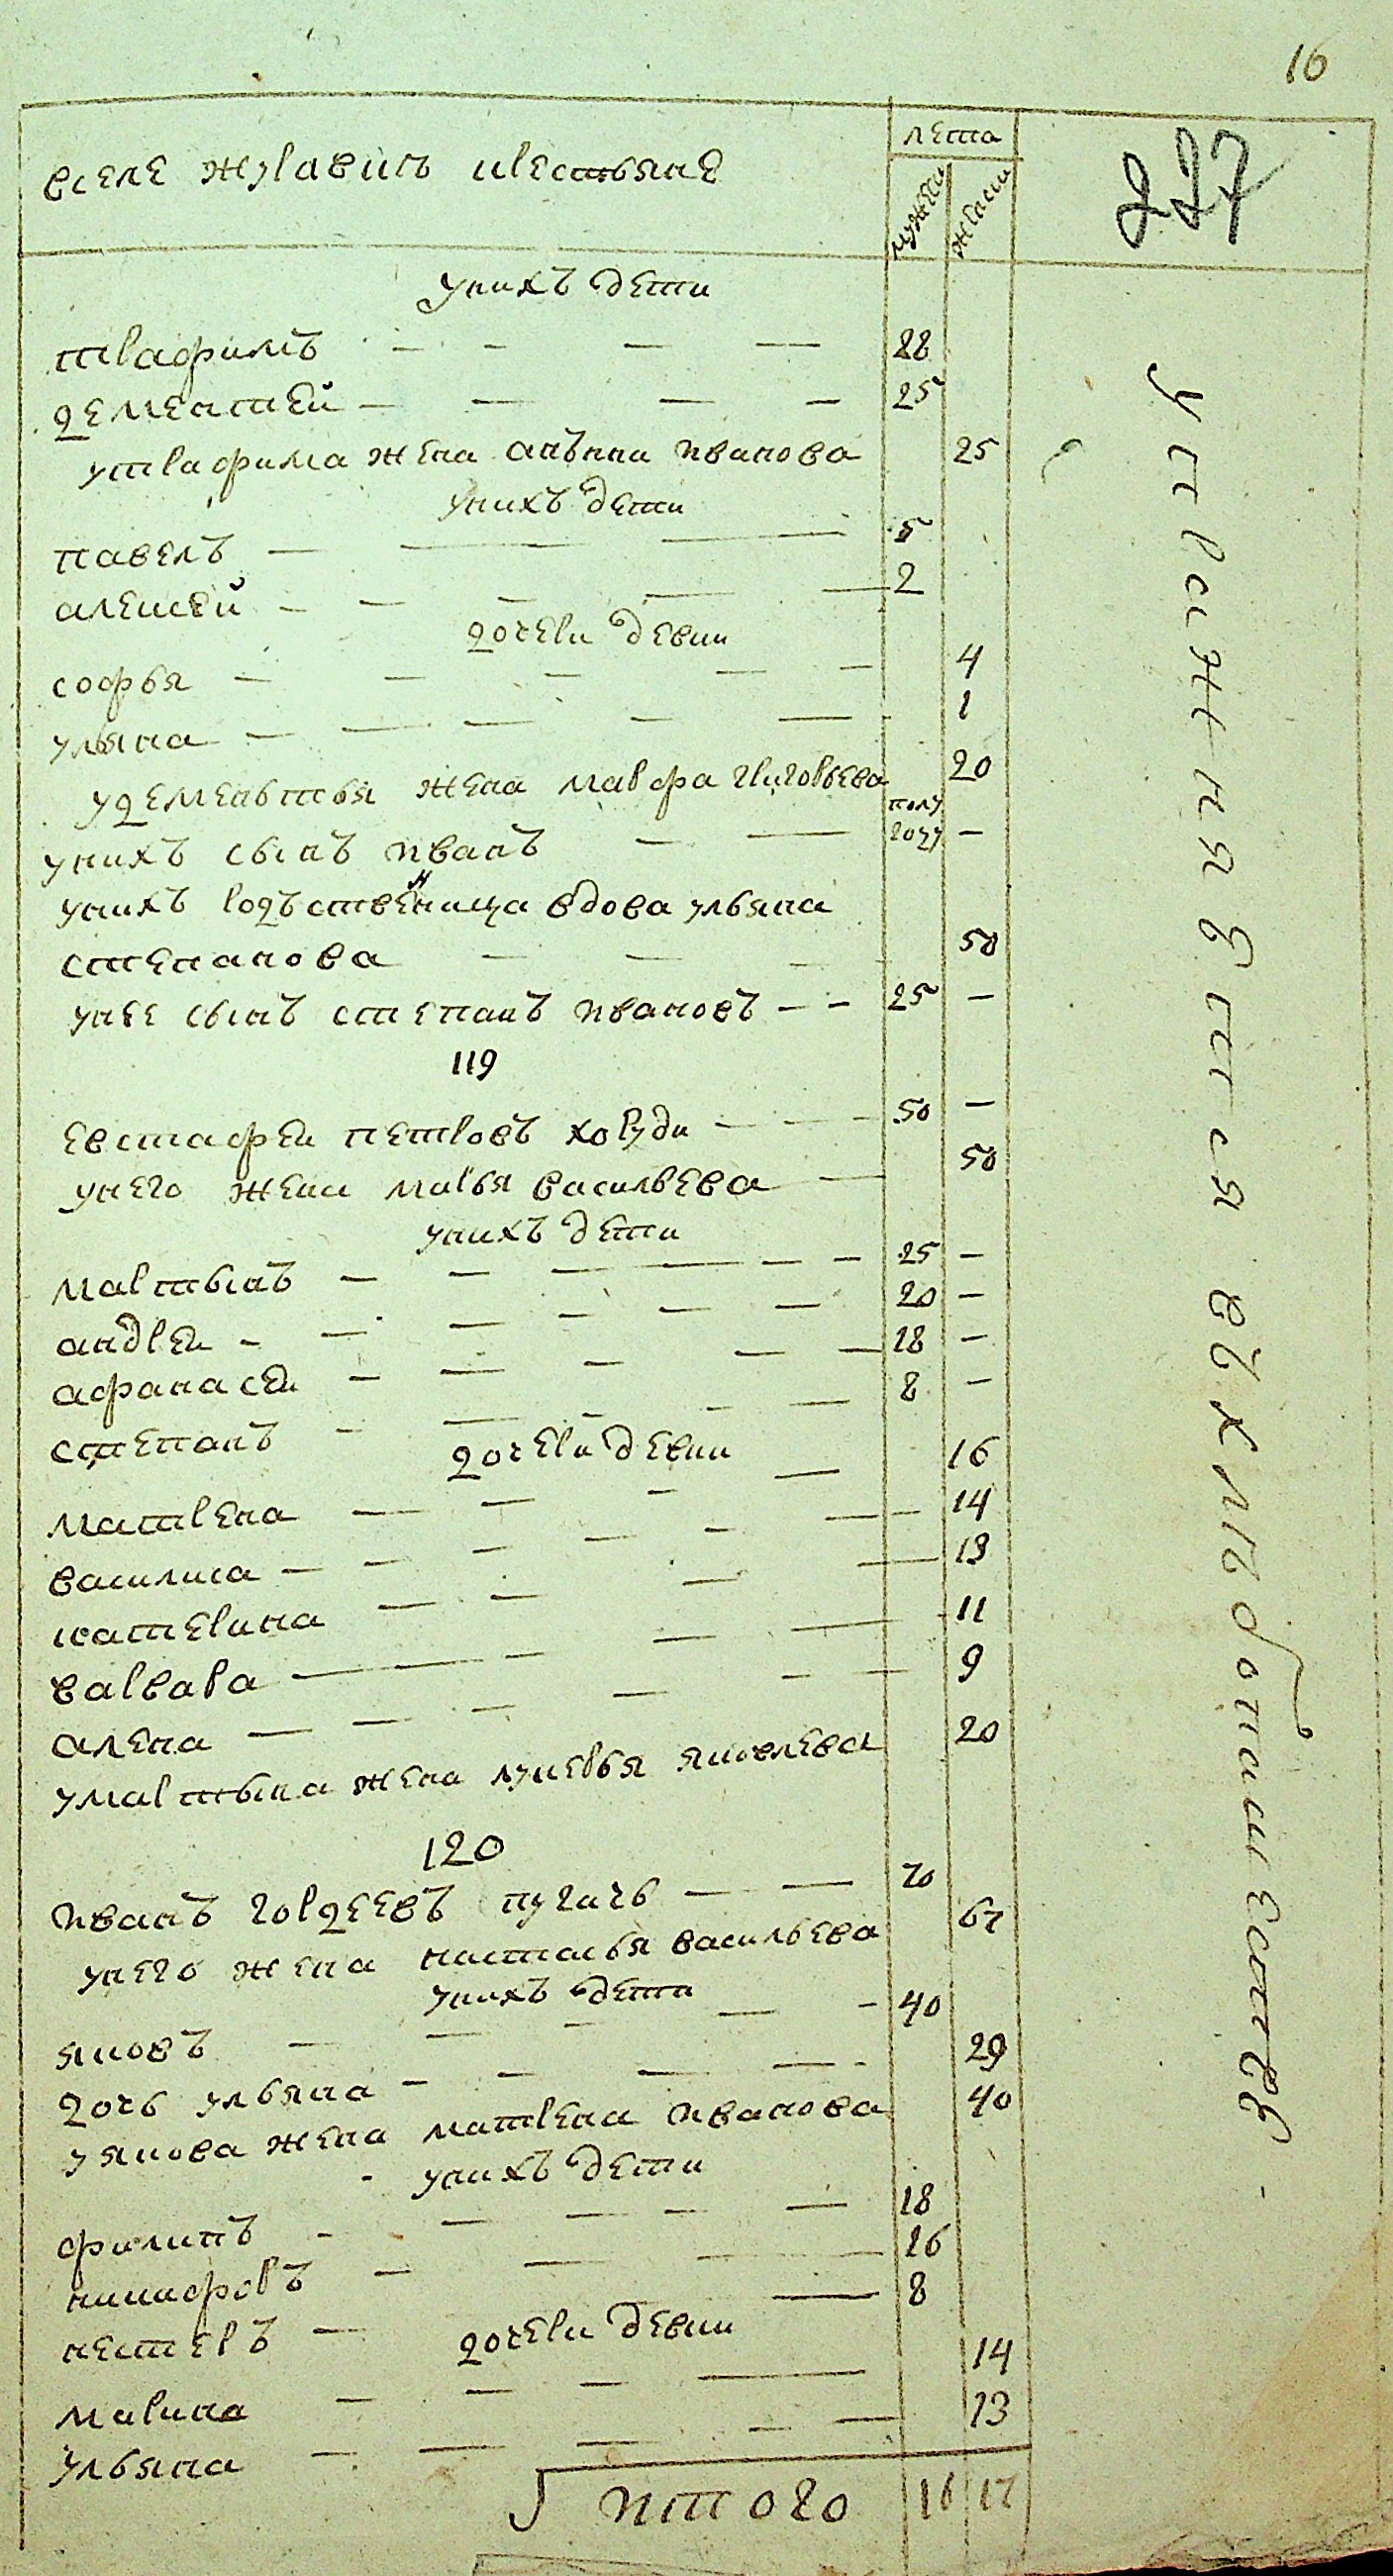 16
лета
вселе журавкѣ крестьяне
мужеск женск
227
унихъ дети
трафимъ 28
дементей 25
утрафима жена анънна иванова 25
унихъ дети
павелъ 5
алексей 2
дочери девки
софья 4
ульяна 1
удементья жена мавра григорьева 20
унихъ сынъ иванъ полу году
унихъ родъственница вдова ульяна
степанова 50
унее сынъ степанъ ивановъ 25
119
евстафеи петровъ 50
унего жена марья васильева 50
унихъ дети
мартынъ 25
андреи 20
афанасеи 18
степанъ 8
дочери девки
матрена 16
василиса 14
катерина 13
варвара 11
алена 9
умартына жена лукерья яковлева 20
120
иванъ гордеевъ пугачь 70
унего жена настасья васильева 67
унихъ дети
яковъ 40
дочь ульяна 29
уякова жена матрена иванова 40
унихъ дети
филипъ 18
никифоръ 16
нестеръ 8
дочери девки
марина 14
ульяна 13
итого 16 17